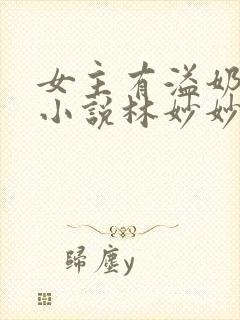 女主有溢奶
小説林妙妙
歸塵y